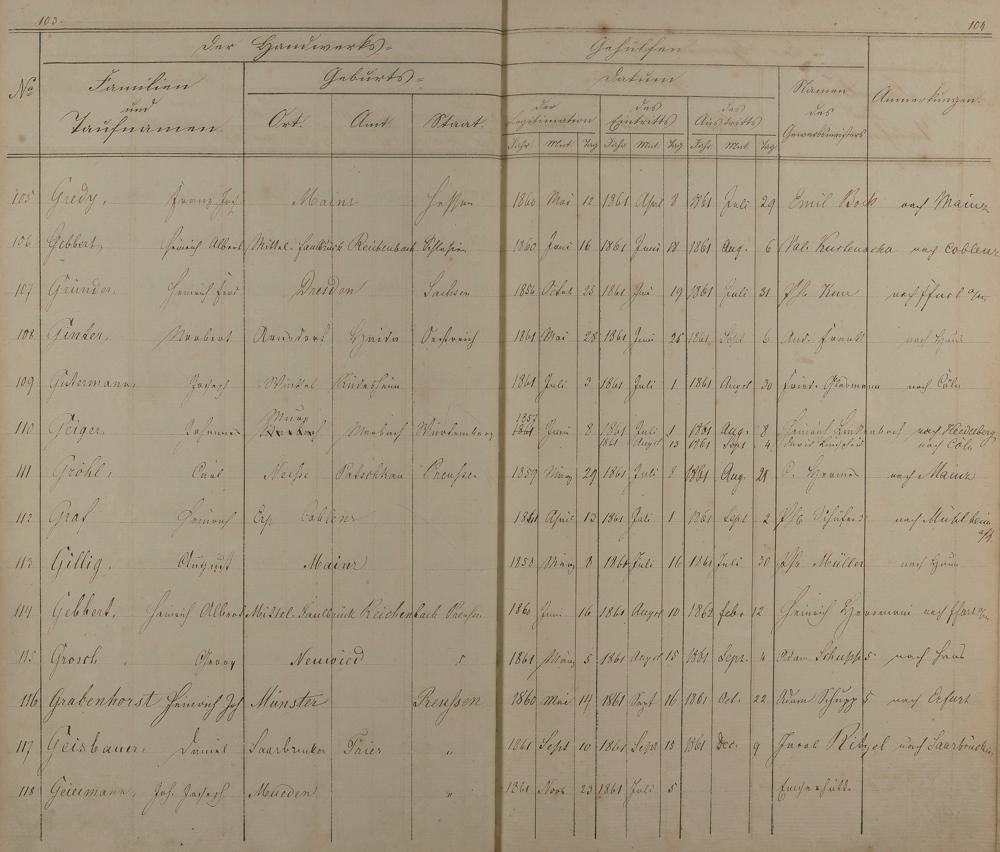 103. 104
Der Handwerks= Gehülfen
No Familien und Taufnamen. Geburts= Datum Namen des Gewerbsmeisters Anmerkungen.
Ort. Amt. Staat. der Legitimation des Eintritts des Austritts
Jahr Mnt. Tag Jahr Mnt. Tag Jahr Mnt. Tag
105 Gredy, Franz Jos Mainz Hessen 1860 Mai 12 1861 April 8 1861 Juli 29 Emil Bock nach Mainz
106 Gebbert, Heinrich Albert Mittel-Faulbrück Reichenbach Schlesien 1860 Juni 16 1861 Juni 18 1861 Aug. 6 nach Coblenz
107 Gründer, Heinrich Dresden Sachsen 1856 Octbr 25 1861 Juni 19 1861 Juli 31 Ph. nach Ffurt a/m
108 Ginter, Norbert Arnsdorf Haida Oestreich 1861 Mai 28 1861 Juni 26 1861 Sept 6 And. Frank nach Haus
109 Gutermann, Joseph Winkel Rüdesheim 1861 Juli 3 1861 Juli 1 1861 August 30 Fried. Grasmann nach Cöln
110 Geiger, Johannes Murr Marbach Würtemberg 1857 Juni 8 1861 Juli 1 1861 Aug. 8 Heinrich nach Heidelberg
1861 August 13 1861 Sept. 4 nach Cöln
111 Gröhl, Carl Neisse Patschkau Preussen 1859 März 29 1861 Juli 8 1861 Aug. 21 C. Hermes nach Mainz
112 Graf Heinrich Erp Coblenz 1861 April 13 1861 Juli 1 1861 Sept 2 Phil Schäfer nach Mühlheim a/R
113 Gillig, August Mainz 1858 März 8 1861 Juli 16 1861 Juli 30 Ph. Müller nach Haus
114 Gebbert, Heinrich Albert Mittel-Faulbrück Reichenbach Preussen 1860 Juni 16 1861 August 10 1862 Febr 12 Heinrich Herrmani nach Ffurt a/m
115 Grosch, Georg Neuwied 1861 März 5 1861 August 15 1861 Sept. 4 Adam Schupp 5. nach Haus
116 Grabenhorst Heinrich Jos Münster Preussen 1860 Mai 14 1861 Sept 16 1861 Oct. 22 Adam Schupp 5 nach Erfurt
117 Geisbauer, Daniel Saarbrucken Trier " 1861 Sept 10 1861 Sept 13 1861 Dec. 9 Jacob Ritzel nach Saarbrücken
118 Geiermann, Joh. Joseph Mueden " 1861 Nov. 23 1861 Juli 5 Emserhütte